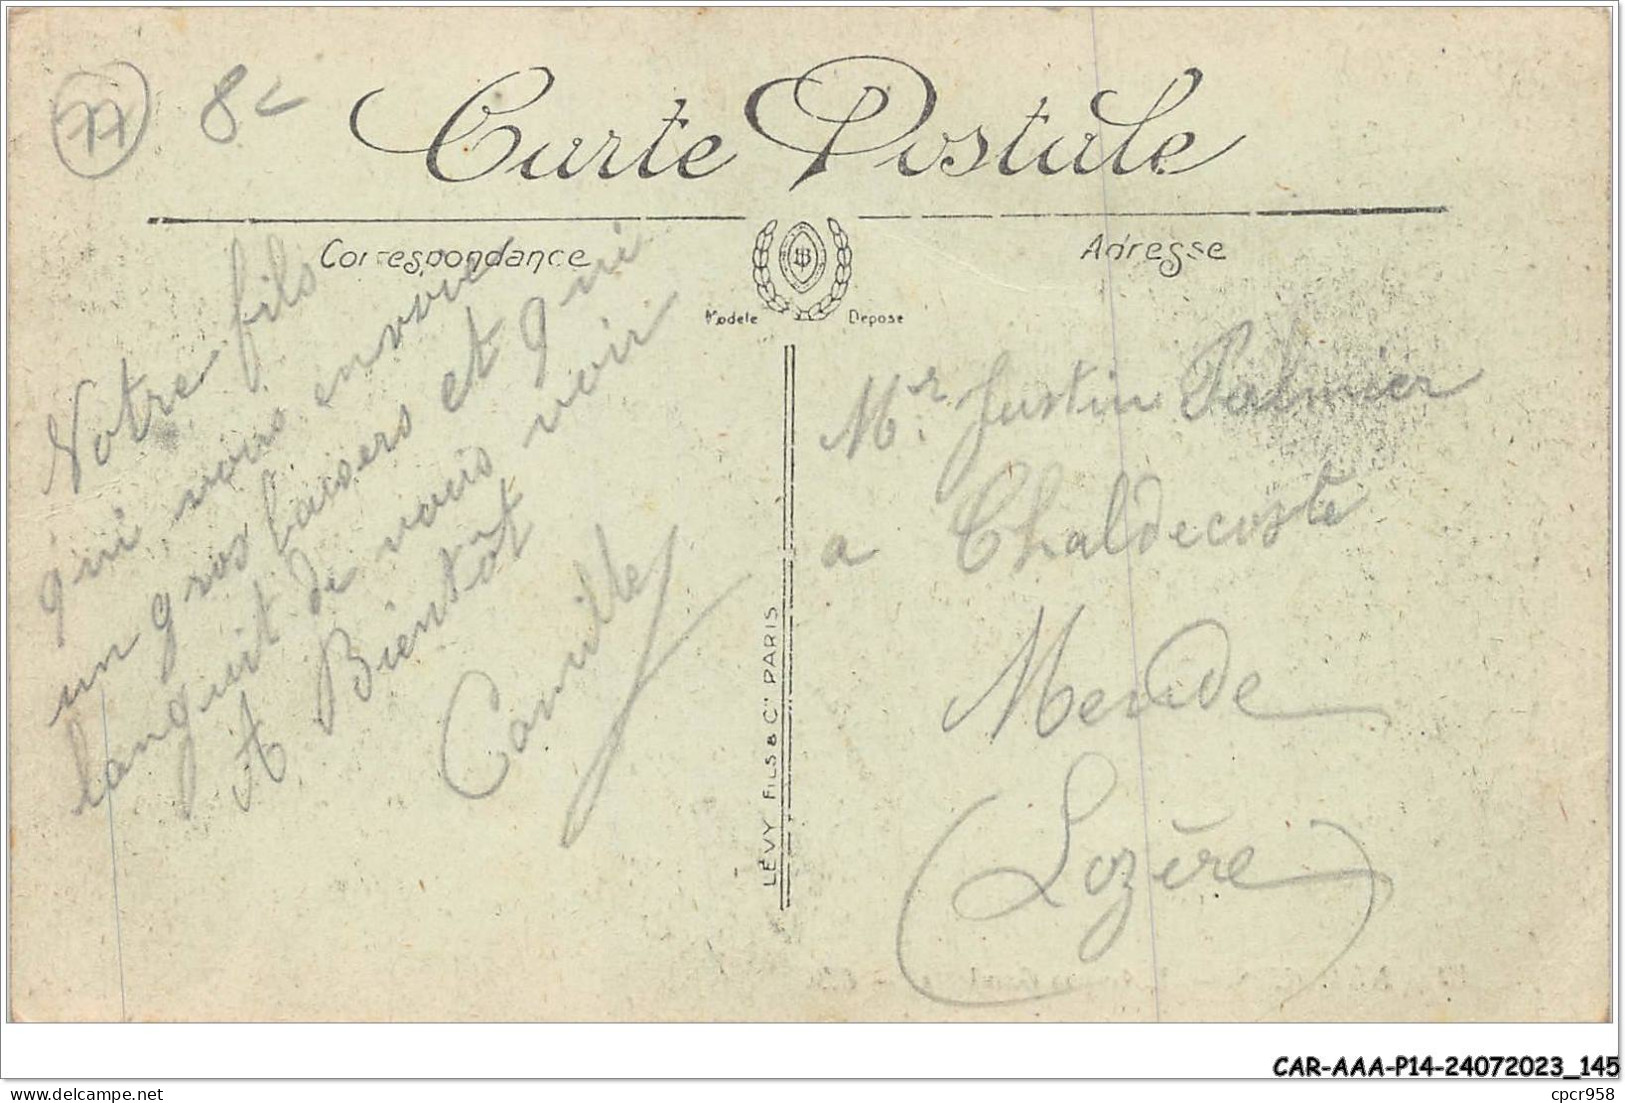 77 8
Carte Postale
Correspondance
Adresse
Modèle Déposé
Votre fils
qui vous envoie
un gros baisers et qui
languit de vous voir
A Bientôt
Camille
LÉVY FILS & Cie PARIS
Mr. Justin Palmier
a Chaldecoste
Mende
(Lozère)
CAR-AAA-P14-24072023_145
delcampe.net
cpcr958